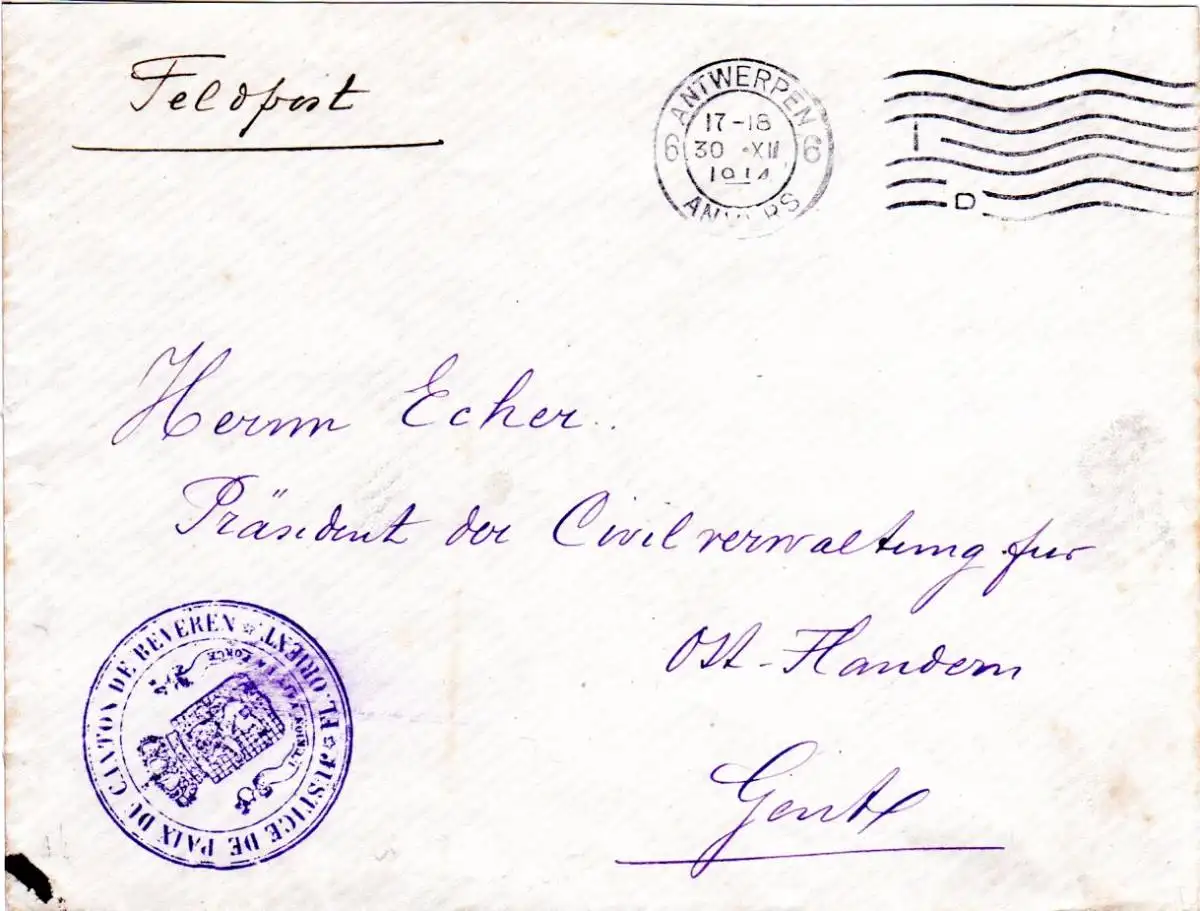 Feldpost
ANTWERPEN
6 17-18 6
30 XII
1914
ANVERS
1
D
Herrn Echer.
Präsident der Civilverwaltung fur
Ost-Flandern
Gent
JUSTICE DE PAIX DU CANTON DE BEVEREN ☆ FL. ORIENT. ☆
L'UNION FAIT LA FORCE